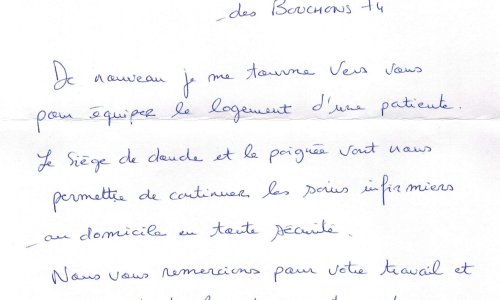 des BOUCHONS 74
De nouveau je me tourne vers vous
pour équiper le logement d'une patiente.
Le siège de douche et la poignée vont nous
permettre de continuer les soins infirmiers
au domicile en toute sécurité.
Nous vous remercions pour votre travail et